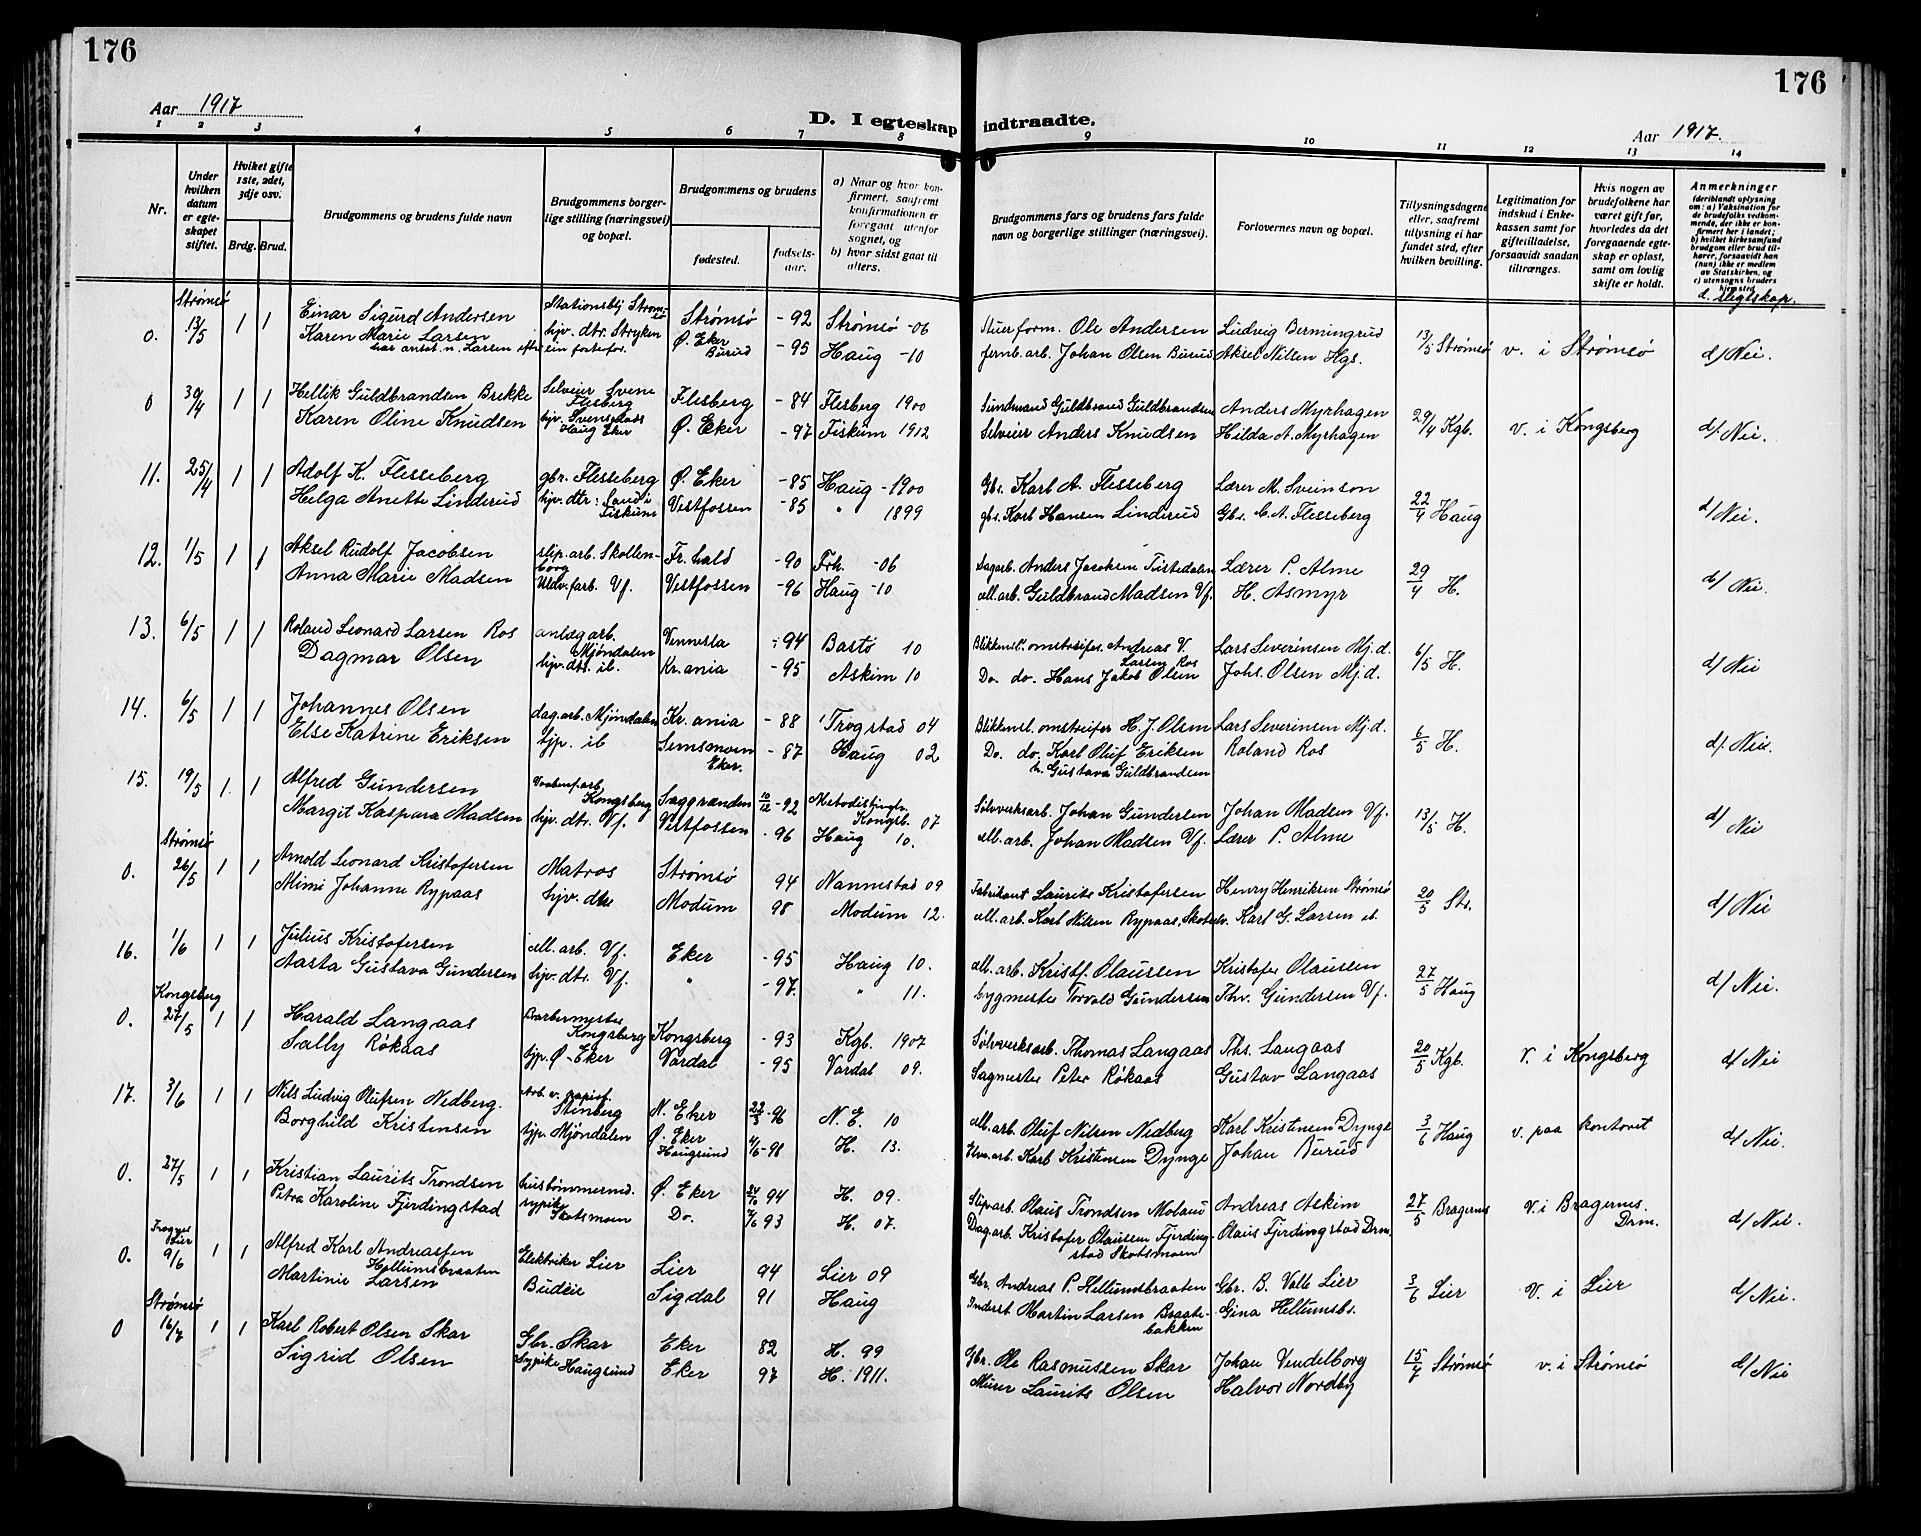 176
176
Aar 1917
D. I egteskap indtraadte.
Aar 1917.
1 2 3 4 5 6 7 8 9 10 11 12 13 14
Nr.
Under hvilken datum er egteskapet stiftet.
Hvilket gifte 1ste, 2det, 3dje osv.
Brdg. Brud.
Brudgommens og brudens fulde navn
Brudgommens borgerlige stilling (næringsvei) og bopæl.
Brudgommens og brudens
fødested.
fødselsaar.
a) Naar og hvor konfirmert, saafremt konfirmationen er foregaat utenfor sognet, og
b) hvor sidst gaat til alters.
Brudgommens fars og brudens fars fulde navn og borgerlige stillinger (næringsvei).
Forlovernes navn og bopæl.
Tillysningsdagene eller, saafremt tillysning ei har fundet sted, efter hvilken bevilling.
Legitimation for indskud i Enkekassen samt for giftetilladelse, forsaavidt saadan tiltrænges.
Hvis nogen av brudefolkene har været gift før, hvorledes da det foregaaende egteskap er opløst, samt om lovlig skifte er holdt.
Anmerkninger (deriblandt oplysning om: a) Vaksination for de brudefolks vedkommende, der ikke er konfirmert her i landet; b) hvilket kirkesamfund brudgom eller brud tilhører, forsaavidt han (hun) ikke er medlem av Statskirken, og c) utensogns bruders hjemsted.
d. slegtskap.
Strømsø
0. 13/5 1 1 Einar Sigurd Andersen Strømsø - 92 Strømsø - 06 Ole Andersen Ludvig Bermingrud 13/5 Strømsø v. i Strømsø d/ Nei.
Karen Marie Larsen hjv. dtr. Stryken Ø. Eker Burud - 95 Haug - 10 Johan Olsen Burud Aksel Nilsen Hgs.
0 30/4 1 1 Hellik Guldbrandsen Brekke Selveier Svene Flesberg Flesberg - 84 Flesberg 1900 Guldbrand Guldbrandsen Anders Myrhagen 29/4 Kgb. v. i Kongsberg d/ Nei.
Karen Oline Knudsen Haug Eker Ø. Eker - 97 Fiskum 1912 Selveier Anders Knudsen Hilda A. Myrhagen
11. 25/4 1 1 Adolf K. Flesseberg gbr. Flesseberg Ø. Eker - 85 Haug - 1900 Gbr. Karl A. Flesseberg Lærer M. Sveinson 22/4 Haug d/ Nei.
Helga Anette Linderud hjv. dtr: Sand i Fiskum Vestfossen - 85 " 1899 gbr. Karl Hansen Linderud Gbr. C. A. Flesseberg
12. 1/5 1 1 Aksel Rudolf Jacobsen slip. arb. Skollenborg Fr. hald - 90 Frh. - 06 Dagarb. Anders Jacobsen Tistedalen Lærer P. Alme 29/4 H. d/ Nei.
Anna Marie Madsen Vf. Vestfossen - 96 Haug - 10 cell. arb. Guldbrand Madsen Vf. H. Asmyr
13. 6/5 1 1 Roland Leonard Larsen Ros anlæg arb. Mjøndalen Vennesla - 94 Bastø 10 Andreas V. Larsen Ros Lars Severinsen Mj.d. 6/5 H. d/ Nei
Dagmar Olsen hjv. dtr. ib. Kr.ania - 95 Askim 10 Do. do. Hans Jakob Olsen Johs. Olsen Mj.d.
14. 6/5 1 1 Johannes Olsen dag. arb. Mjøndalen Kr. ania - 88 Trøgstad 04 H. J. Olsen Lars Severinsen Mj.d. 6/5 H. d/ Nei.
Else Katrine Eriksen tjp. ib Semsmoen Eker. - 87 Haug 02 Do. do. Karl Oluf Eriksen Roland Ros
h. Gustava Guldbrandsen
15. 19/5 1 1 Alfred Gundersen Vaabenf.arb. Kongsberg Saggrenden 10/12 - 92 Kongsb. 07 Sølvverksarb. Johan Gundersen Johan Madsen Vf. 13/5 H. d/ Nei
Margit Kaspara Madsen hjv. dtr. Vf. Vestfossen - 96 Haug 10. cell. arb. Johan Madsen Vf. Lærer P. Alme
Strømsø
0. 26/5 1 1 Arnold Leonard Kristofersen Matros Strømsø 94 Nannestad 09 Fabrikant Laurits Kristofersen Henry Henriksen Strømsø 20/5 Sts. d/ Nei
Mimi Johanne Rypaas hjv. dtr Modum 98 Modum 12. cell. arb. Karl Nilsen Rypaas, Karl G. Larsen
16. 1/6 1 1 Julius Kristofersen cell. arb. Vf. Eker - 95 Haug 10. cell. arb. Kristf. Olaussen Kristofer Olaussen 27/5 Haug d/ Nei.
Aasta Gustava Gundersen hjv. dtr. Vf. " - 97. " 11. bygmester Torvald Gundersen Thv. Gundersen Vf.
Kongsberg
0. 27/5 1 1 Harald Langaas Barbermester Kongsberg Kongsberg - 93 Kgb. 1907 Sølvverksarb. Thomas Langaas Ths. Langaas 20/5 Kgb. V. i Kongsberg d/ Nei
Sally Røkaas tjp. Ø - Eker Vardal - 95 Vardal 09. Sagmester Peter Røkaas Gustav Langaas
17. 3/6 1 1 Nils Ludvig Olufsen Nedberg. Arb. v. papirf. Stenberg N. Eker 22/3 - 96 N. E. 10 cell. arb. Oluf Nilsen Nedberg Karl Kristensen Dynge 3/6 Haug v. paa kontoret d/ Nei.
Borghild Kristensen tjp. Mjøndalen Ø. Eker Haugsund 4/6 - 98 H. 13. Karl Kristensen Dynge Johan Burud
0. 27/5 1 1 Kristian Laurits Trondsen hustømmermd. Ø. Eker 94 H. 09. Sliparb. Olaus Trondsen Moland Andreas Askim 27/5 Bragernes V. i Bragernes. Drm. d/ Nei.
Petra Karoline Fjerdingstad sypike Skotsmoen Do. 93 H. 07. Dagarb. Kristofer Olaussen Fjerdingstad Skotsmoen Olaus Fjerdingstad Drm.
Lier
0. 9/6 1 1 Alfred Karl Andreassen Hellumsbraaten Elektriker Lier Lier 94 Lier 09 Gbr. Andreas P. Hellumsbraaten Gbr. B. Valle Lier 3/6 Lier V. i Lier d/ Nei.
Martinie Larsen Budeie Sigdal 91 Haug Inderst Martin Larsen Braatebakken Gina Hellumsb.
Strømsø
0 16/7 1 1 Karl Robert Olsen Skar Gbr. Skar Eker 82 H. 99 Gbr. Ole Rasmussen Skar Johan Vendelborg 15/7 Strømsø v. i Strømsø d/ Nei
Sigrid Olsen Sypike Haugsund Eker 97 H. 1911. Murer Laurits Olsen Halvor Nordby